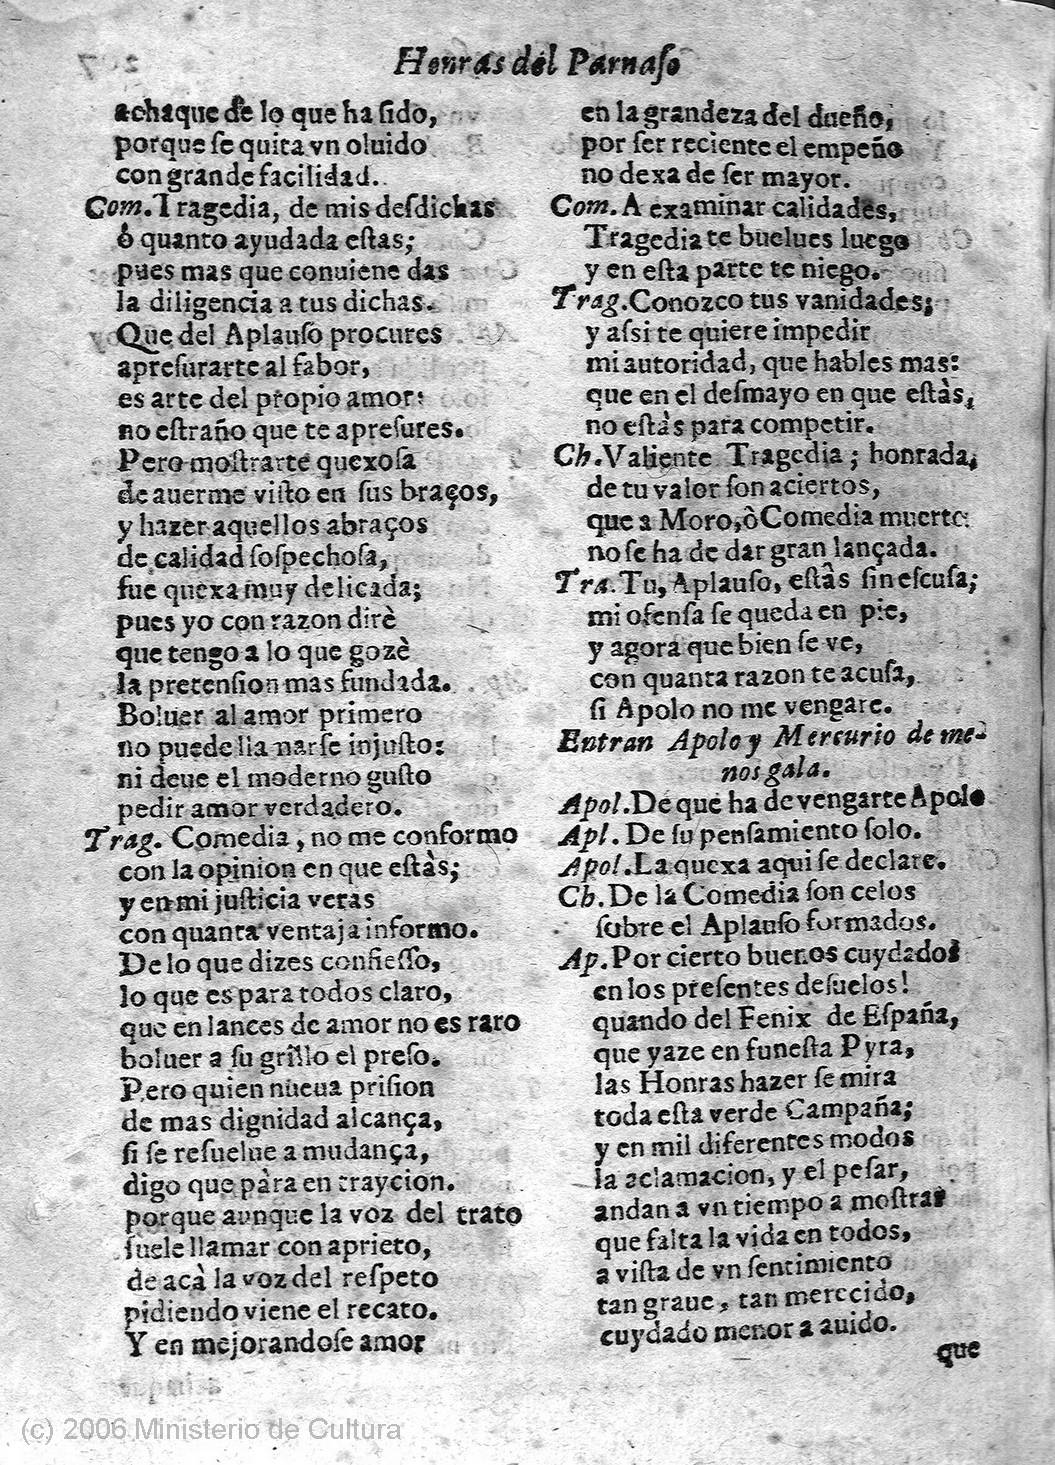 Honras del Parnaſo
achaque de lo que ha ſido,
porque ſe quita vn oluido
con grande facilidad.
Com. Tragedia, de mis deſdichas
ò quanto ayudada eſtas;
pues mas que conuiene das
la diligencia a tus dichas.
Que del Aplauſo procures
apreſurarte al fabor,
es arte del propio amor:
no eſtraño que te apreſures.
Pero moſtrarte quexoſa
de auerme viſto en ſus braços,
y hazer aquellos abraços
de calidad ſoſpechoſa,
fue quexa muy delicada;
pues yo con razon dirè
que tengo a lo que gozè
la pretenſion mas fundada.
Boluer al amor primero
no puede llamarſe injuſto:
ni deue el moderno guſto
pedir amor verdadero.
Trag. Comedia, no me conformo
con la opinion en que eſtàs;
y en mi juſticia veras
con quanta ventaja informo.
De lo que dizes confieſſo,
lo que es para todos claro,
que en lances de amor no es raro
boluer a ſu grillo el preſo.
Pero quien nueua priſion
de mas dignidad alcança,
ſi ſe reſuelue a mudança,
digo que pàra en traycion.
porque aunque la voz del trato
ſuele llamar con aprieto,
de acà la voz del reſpeto
pidiendo viene el recato.
Y en mejorandoſe amor
en la grandeza del dueño,
por ſer reciente el empeño
no dexa de ſer mayor.
Com. A examinar calidades,
Tragedia te buelues luego
y en eſta parte te niego.
Trag. Conozco tus vanidades;
y aſsi te quiere impedir
mi autoridad, que hables mas:
que en el deſmayo en que eſtàs,
no eſtàs para competir.
Ch. Valiente Tragedia; honrada,
de tu valor ſon aciertos,
que a Moro, ò Comedia muerte
no ſe ha de dar gran lançada.
Tra. Tu, Aplauſo, eſtàs ſin eſcuſa;
mi ofenſa ſe queda en pie,
y agora que bien ſe ve,
con quanta razon te acuſa,
ſi Apolo no me vengare.
Entran Apolo y Mercurio de me-
nos gala.
Apol. De que ha de vengarte Apolo
Apl. De ſu penſamiento ſolo.
Apol. La quexa aqui ſe declare.
Ch. De la Comedia ſon celos
ſobre el Aplauſo formados.
Ap. Por cierto buenos cuydados
en los preſentes deſuelos!
quando del Fenix de Eſpaña,
que yaze en funeſta Pyra,
las Honras hazer ſe mira
toda eſta verde Campaña;
y en mil diferentes modos
la aclamacion, y el peſar,
andan a vn tiempo a moſtrar
que falta la vida en todos,
a viſta de vn ſentimiento
tan graue, tan merecido,
cuydado menor a auido.
que
(c) 2006 Ministerio de Cultura